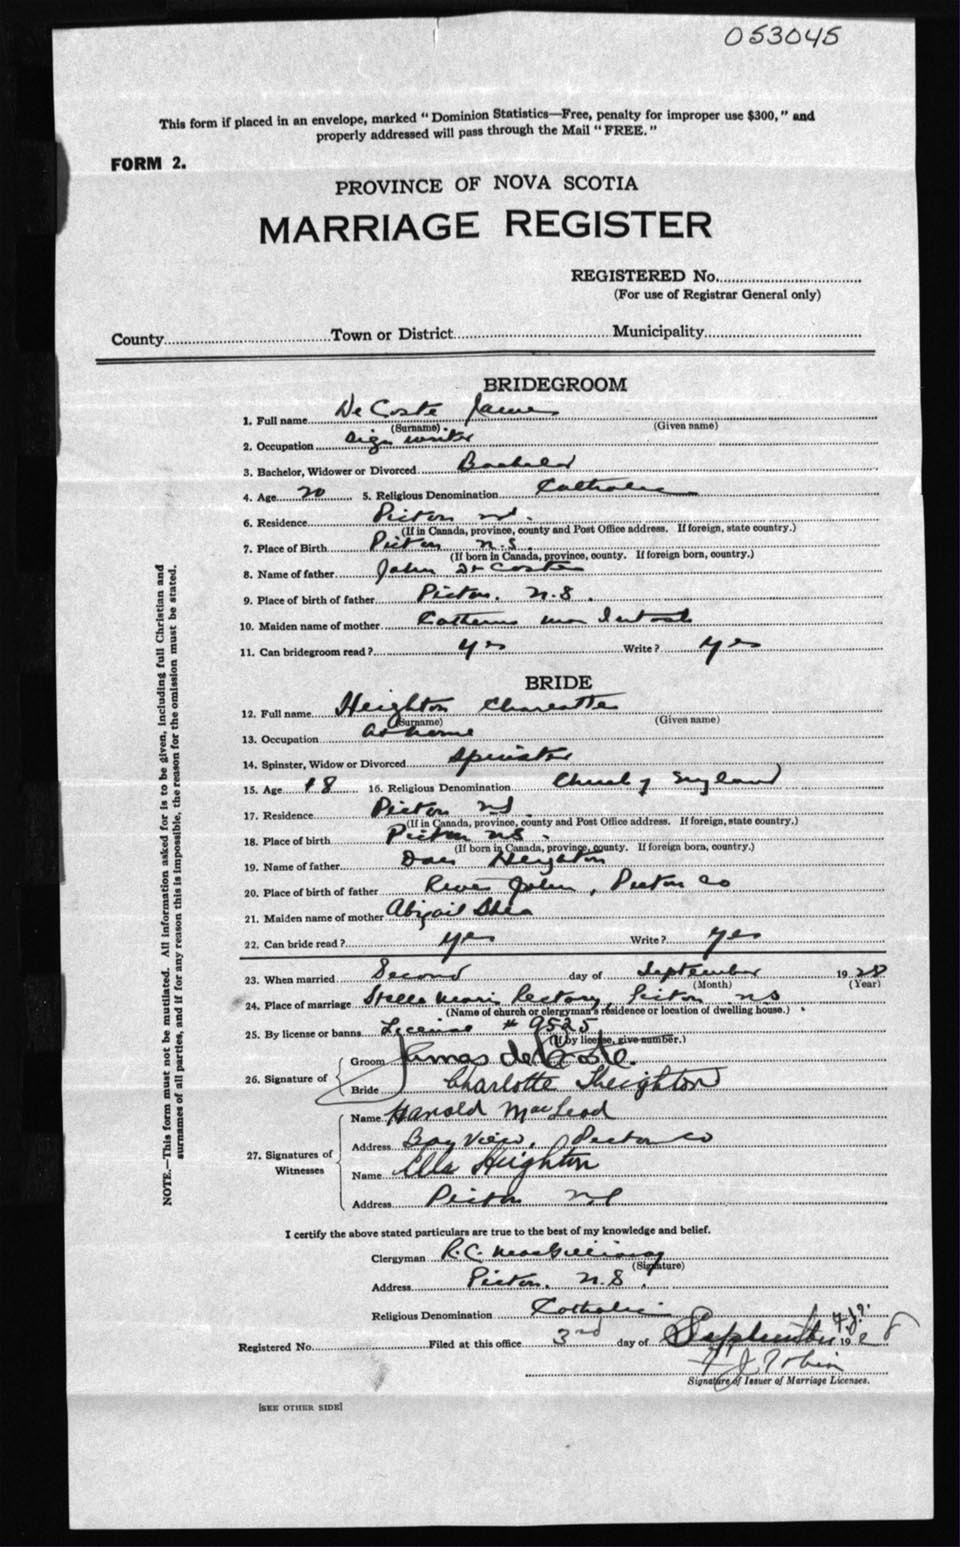 053045
This form if placed in an envelope, marked "Dominion Statistics—Free, penalty for improper use $300," and
properly addressed will pass through the Mail "FREE."
FORM 2.
PROVINCE OF NOVA SCOTIA
MARRIAGE REGISTER
REGISTERED No.
(For use of Registrar General only)
County Town or District Municipality
BRIDEGROOM
1. Full name De Coste James
(Surname) (Given name)
2. Occupation Sign writer
3. Bachelor, Widower or Divorced Bachelor
4. Age 20 5. Religious Denomination Catholic
6. Residence Pictou N.S.
(If in Canada, province, county and Post Office address. If foreign, state country.)
7. Place of Birth Pictou N.S.
(If born in Canada, province, county. If foreign born, country.)
8. Name of father John De Coste
9. Place of birth of father Pictou. N.S.
10. Maiden name of mother Catherine Mac Intosh
11. Can bridegroom read? Yes Write? Yes
BRIDE
12. Full name Heighton Charlotte
(Surname) (Given name)
13. Occupation at home
14. Spinster, Widow or Divorced Spinster
15. Age 18 16. Religious Denomination Church of England
17. Residence Pictou N.S.
(If in Canada, province, county and Post Office address. If foreign, state country.)
18. Place of birth Pictou N.S.
(If born in Canada, province, county. If foreign born, country.)
19. Name of father Heighton
20. Place of birth of father River John, Pictou Co
21. Maiden name of mother Abigail Shea
22. Can bride read? Yes Write? Yes
23. When married Second day of September 1928
(Month) (Year)
24. Place of marriage Stella Maris Rectory, Pictou NS
(Name of church or clergyman's residence or location of dwelling house.)
25. By license or banns License # 9525
(If by license, give number.)
26. Signature of Groom James de Coste.
Bride Charlotte Heighton
27. Signatures of Witnesses
Name Harold MacLeod
Address Bay View, Pictou Co
Name Ella Heighton
Address Pictou N.S.
I certify the above stated particulars are true to the best of my knowledge and belief.
Clergyman R.C. MacGillivray
(Signature)
Address Pictou. N.S.
Religious Denomination Catholic
Registered No. Filed at this office 3rd day of September 1928
F J Tobin
Signature of Issuer of Marriage Licenses.
[SEE OTHER SIDE]
NOTE.—This form must not be mutilated. All information asked for is to be given, including full Christian and
surnames of all parties, and if for any reason this is impossible, the reason for the omission must be stated.